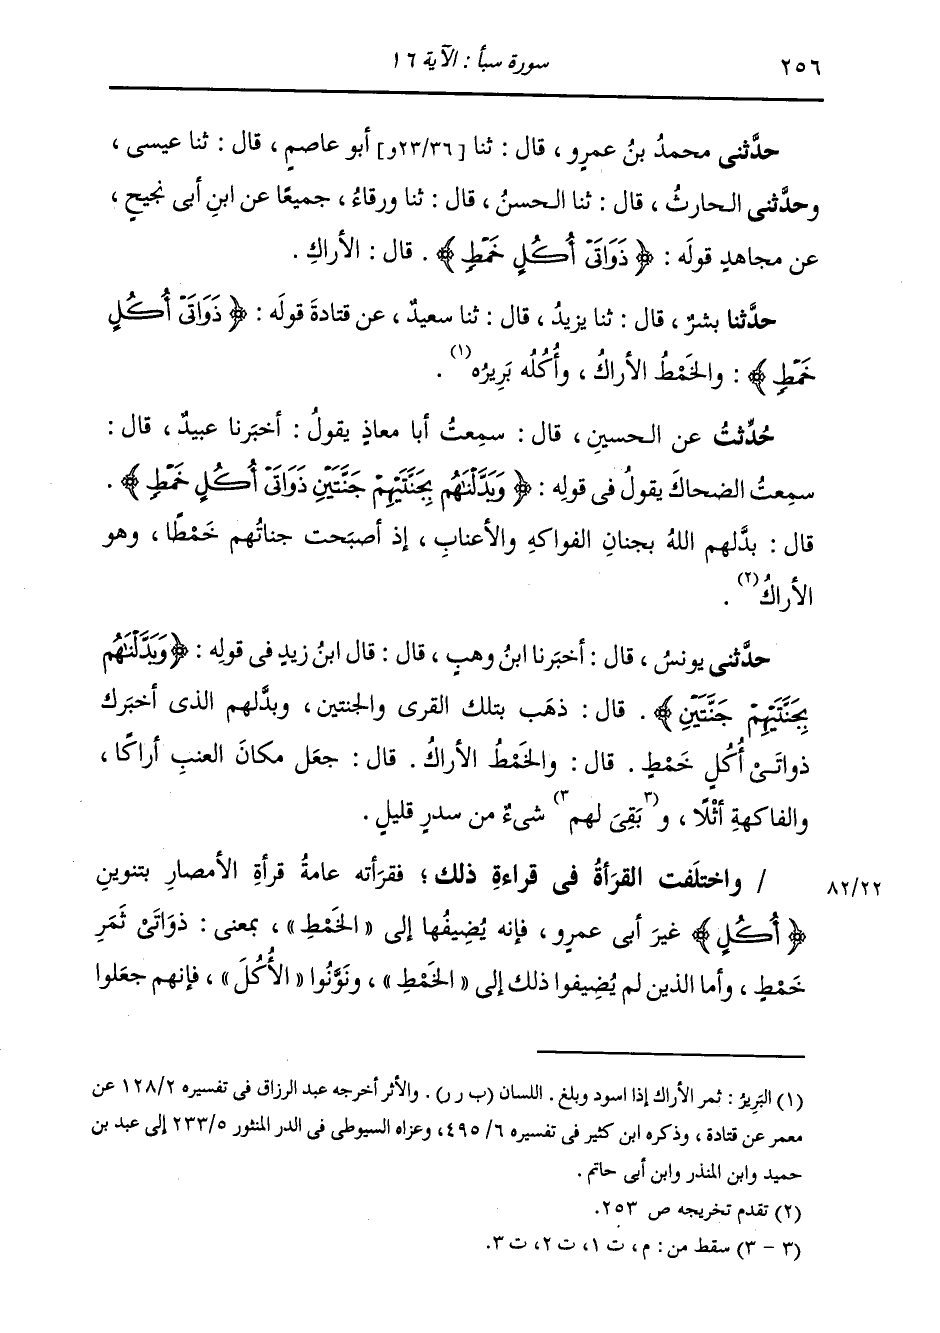 ٢٥٦ سورة سبأ : الآية ١٦
حدَّثنى محمدُ بنُ عمرٍو ، قال : ثنا [٢٣/٣٦و] أبو عاصمٍ ، قال : ثنا عيسى ،
وحدَّثنى الحارثُ ، قال : ثنا الحسنُ ، قال : ثنا ورقاءُ ، جميعًا عن ابنِ أبى نجيحٍ ،
عن مجاهدٍ قولَه : ﴿ ذَوَاتَىْ أُكُلٍ خَمْطٍ ﴾ . قال : الأراكِ .
حدَّثنا بشرٌ ، قال : ثنا يزيدُ ، قال : ثنا سعيدٌ ، عن قتادةَ قولَه : ﴿ ذَوَاتَىْ أُكُلٍ
خَمْطٍ ﴾ : والخَمْطُ الأراكُ ، وأُكُلُه بَرِيرُه (١) .
حُدِّثتُ عن الحسينِ ، قال : سمِعتُ أبا معاذٍ يقولُ : أخبَرنا عبيدٌ ، قال :
سمِعتُ الضحاكَ يقولُ فى قولِه : ﴿ وَبَدَّلْنَٰهُم بِجَنَّتَيْهِمْ جَنَّتَيْنِ ذَوَاتَىْ أُكُلٍ خَمْطٍ ﴾ .
قال : بدَّلهم اللهُ بجنانِ الفواكهِ والأعنابِ ، إذ أصبَحت جناتُهم خَمْطًا ، وهو
الأراكُ (٢) .
حدَّثنى يونسُ ، قال : أخبَرنا ابنُ وهبٍ ، قال : قال ابنُ زيدٍ فى قولِه : ﴿ وَبَدَّلْنَٰهُم
بِجَنَّتَيْهِمْ جَنَّتَيْنِ ﴾ . قال : ذهَب بتلك القرى والجنتين ، وبدَّلهم الذى أخبَرك
ذواتَىْ أُكُلٍ خَمْطٍ . قال : والخَمْطُ الأراكُ . قال : جعَل مكانَ العنبِ أراكًا ،
والفاكهةِ أثْلًا ، و(٣ بَقِىَ لهم ٣) شىءٌ من سدرٍ قليلٍ .
٨٢/٢٢ / واختلَفت القرَأةُ فى قراءةِ ذلك ؛ فقرَأته عامةُ قرأةِ الأمصارِ بتنوينِ
﴿ أُكُلٍ ﴾ غيرَ أبى عمرٍو ، فإنه يُضِيفُها إلى « الخَمْطِ » ، بمعنى : ذواتَىْ ثَمَرِ
خَمْطٍ ، وأما الذين لم يُضِيفوا ذلك إلى « الخَمْطِ » ، ونوَّنُوا « الأُكُلَ » ، فإنهم جعَلوا
(١) البَرِيرُ : ثمر الأراك إذا اسود وبلغ . اللسان (ب ر ر) . والأثر أخرجه عبد الرزاق فى تفسيره ١٢٨/٢ عن
معمر عن قتادة ، وذكره ابن كثير فى تفسيره ٤٩٥/٦ ، وعزاه السيوطى فى الدر المنثور ٢٣٣/٥ إلى عبد بن
حميد وابن المنذر وابن أبى حاتم .
(٢) تقدم تخريجه ص ٢٥٣.
(٣ - ٣) سقط من : م ، ت ١، ت ٢، ت ٣.